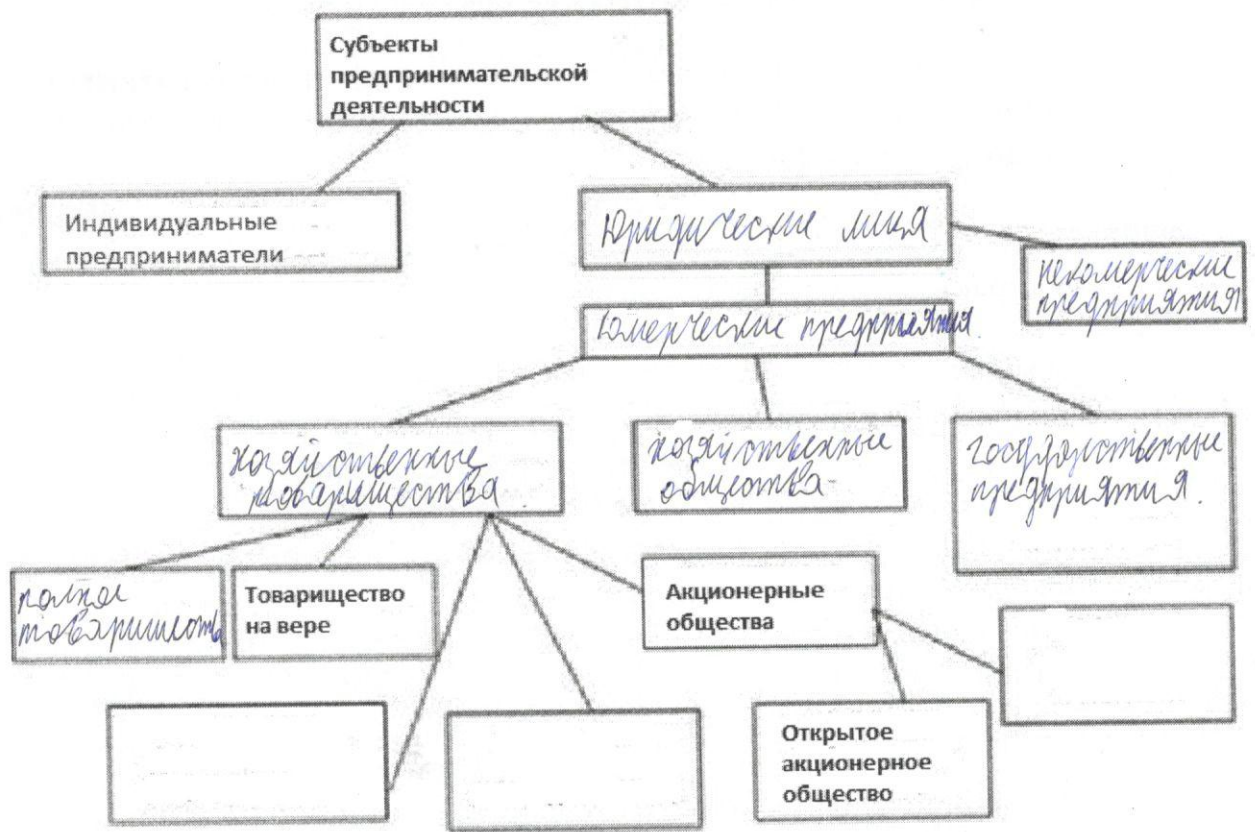 Субъекты
предпринимательской
деятельности
Индивидуальные
предприниматели
Юридические лица
некомерческие
предприятия
комерческие предприятия.
хозяйственные
товарищества
хозяйственные
общества
государственные
предприятия.
полное
товариществ
Товарищество
на вере
Акционерные
общества
Открытое
акционерное
общество